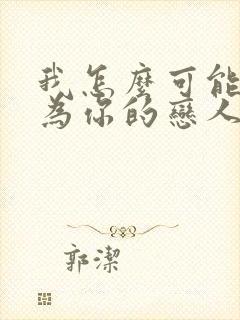 我怎麼可能
為你的戀人
郭潔